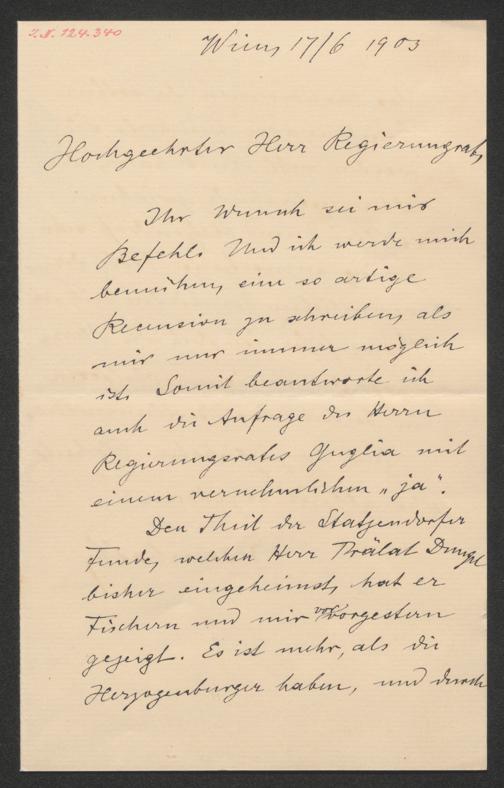 I.N. 124.340
Wien, 17/6 1903
Hochgeehrter Herr Regierungsrat,
Ihr Wunsch sei mir
Befehl. Und ich werde mich
bemühen, eine so artige
Recension zu schreiben, als
mir nur immer möglich
ist. Somit beantworte ich
auch die Anfrage des Herrn
Regierungsrates Guglia mit
einem vernehmlichen „ja".
Den Theil der Statzendorfer
Funde, welchen Herr Prälat Dungel
bisher eingeheimst, hat er
Fischern und mir vorvorgestern
gezeigt. Es ist mehr, als die
Herzogenburger haben, und durch